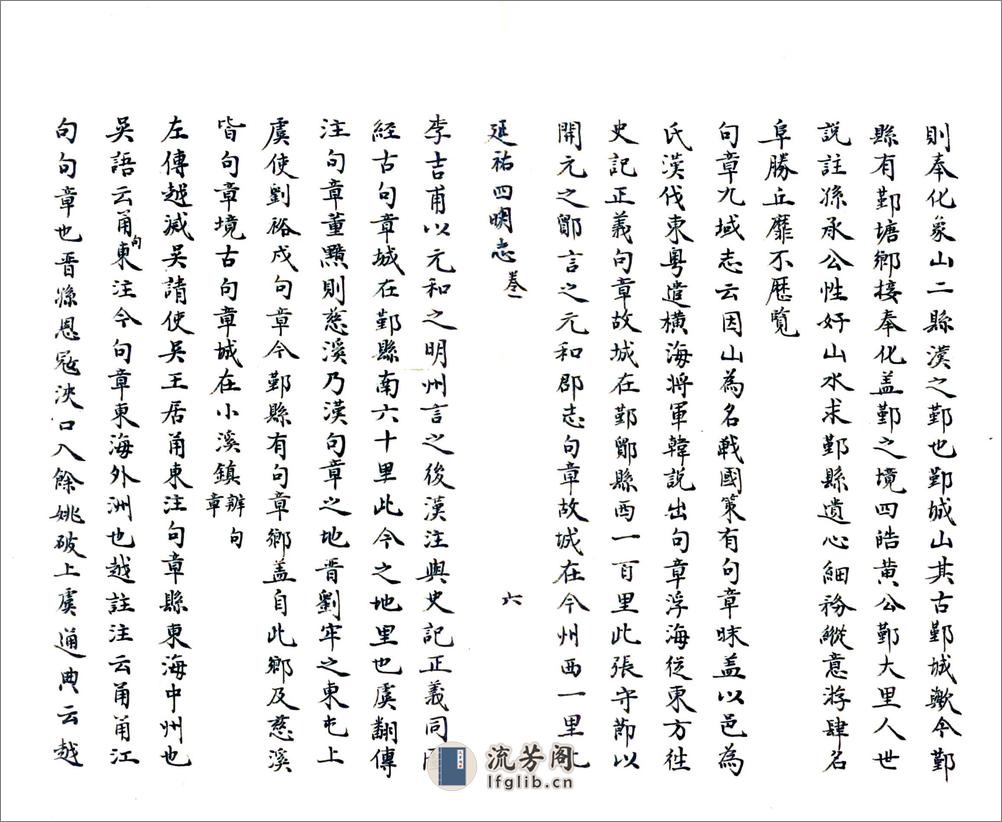 則奉化象山二縣漢之鄞也鄞城山其古鄞城歟今鄞
縣有鄞塘鄉接奉化盖鄞之境四皓黄公鄞大里人世
說註孫承公性好山水求鄞縣遺心細務縱意游肆名
阜勝丘靡不歷覧
句章九域志云因山為名戰國策有句章昧盖以邑為
氏漢伐東粤遣橫海將軍韓説出句章浮海從東方往
史記正義句章故城在鄞鄮縣西一百里此張守節以
開元之鄮言之元和郡志句章故城在今州西一里此
延祐四明志 卷一 六
李吉甫以元和之明州言之後漢注與史記正義同
經古句章城在鄞縣南六十里此今之地里也虞翻傳
注句章董黯則慈溪乃漢句章之地晋劉牢之東屯上
虞使劉裕戍句章今鄞縣有句章鄉盖自此鄉及慈溪
皆句章境古句章城在小溪鎮辨句章
左傳越滅吳請使吳王居甬東注句章縣東海中州也
吳語云甬句東注今句章東海外洲也越註注云甬甬江
句句章也晋孫恩冦浹口入餘姚破上虞通典云越
流芳阁
lfglib.cn